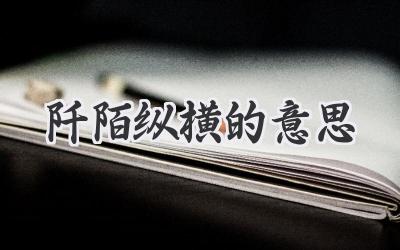 阡陌纵横的意思